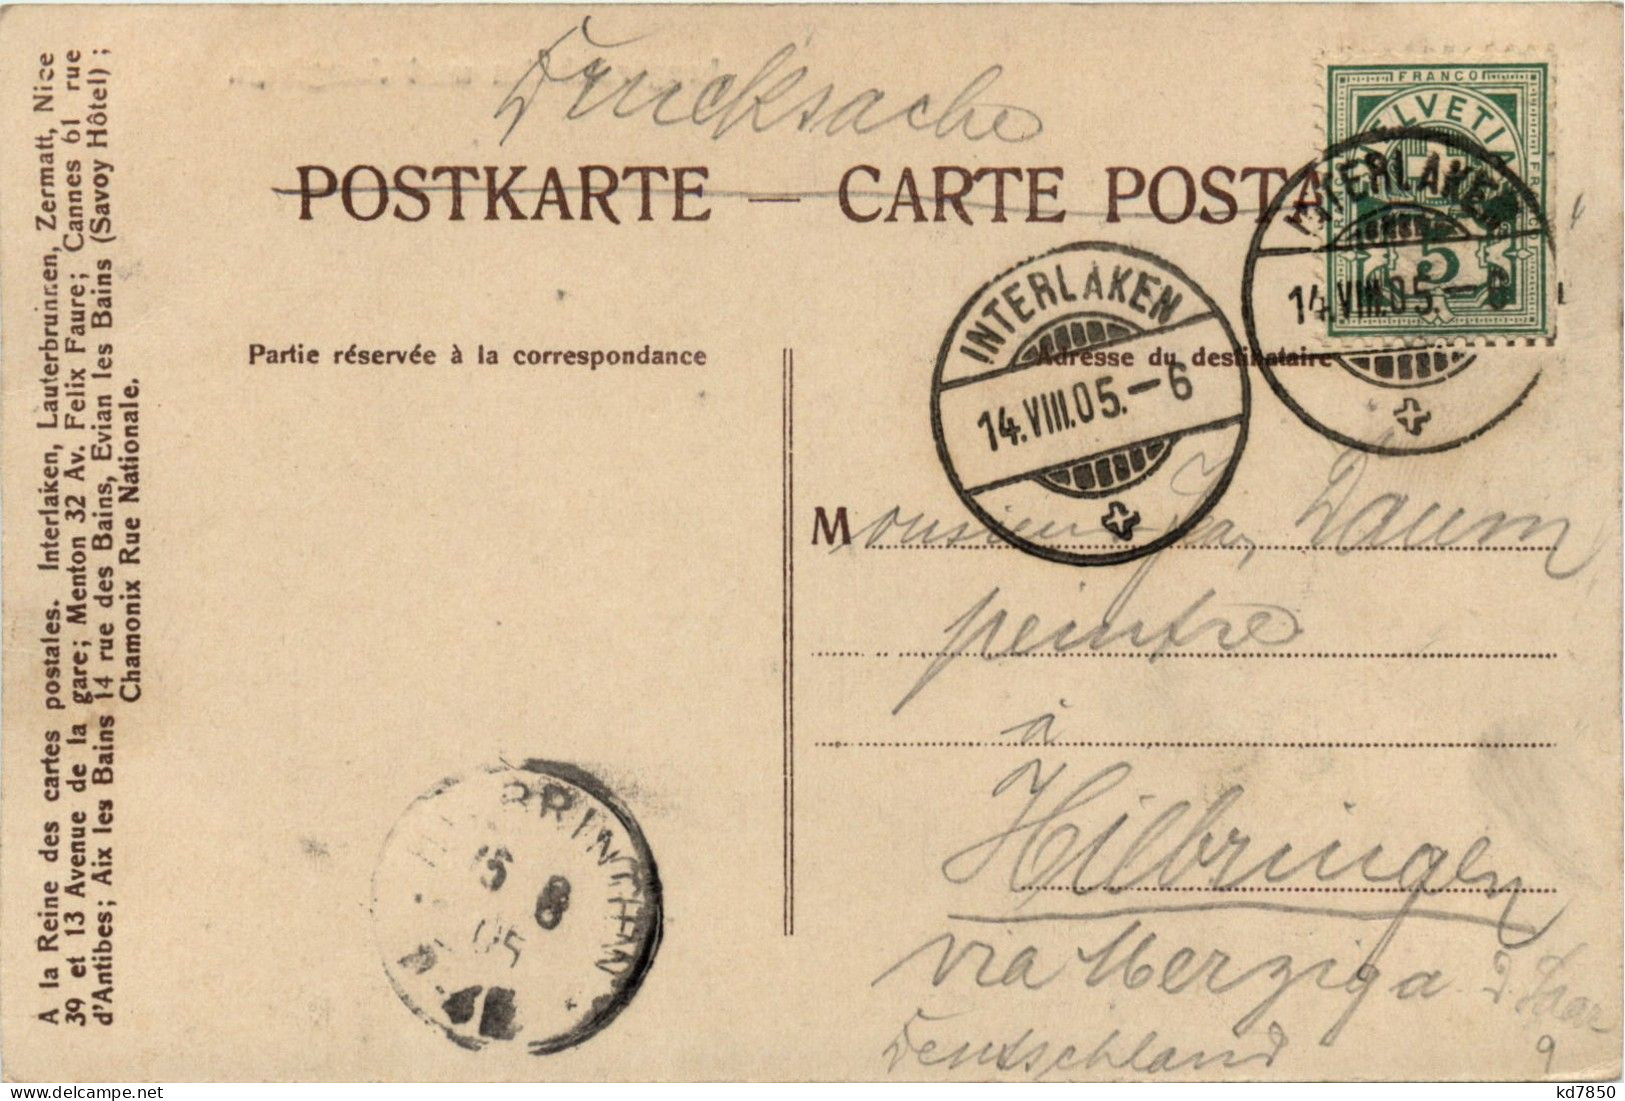 Drucksache
POSTKARTE — CARTE POSTA
FRANCO
HELVETIA
5
INTERLAKEN
14.VIII.05.–6
INTERLAKEN
14.VIII.05.–6
Partie réservée à la correspondance
Adresse du destinataire
A la Reine des cartes postales. Interlaken, Lauterbrunnen, Zermatt, Nice
39 et 13 Avenue de la gare; Menton 32 Av. Felix Faure; Cannes 61 rue
d'Antibes; Aix les Bains 14 rue des Bains, Evian les Bains (Savoy Hôtel);
Chamonix Rue Nationale.
Monsieur Daum
peintre
à
Hilbringen
via Merzig a d Saar
Deutschland
9
15 8
05
kd7850